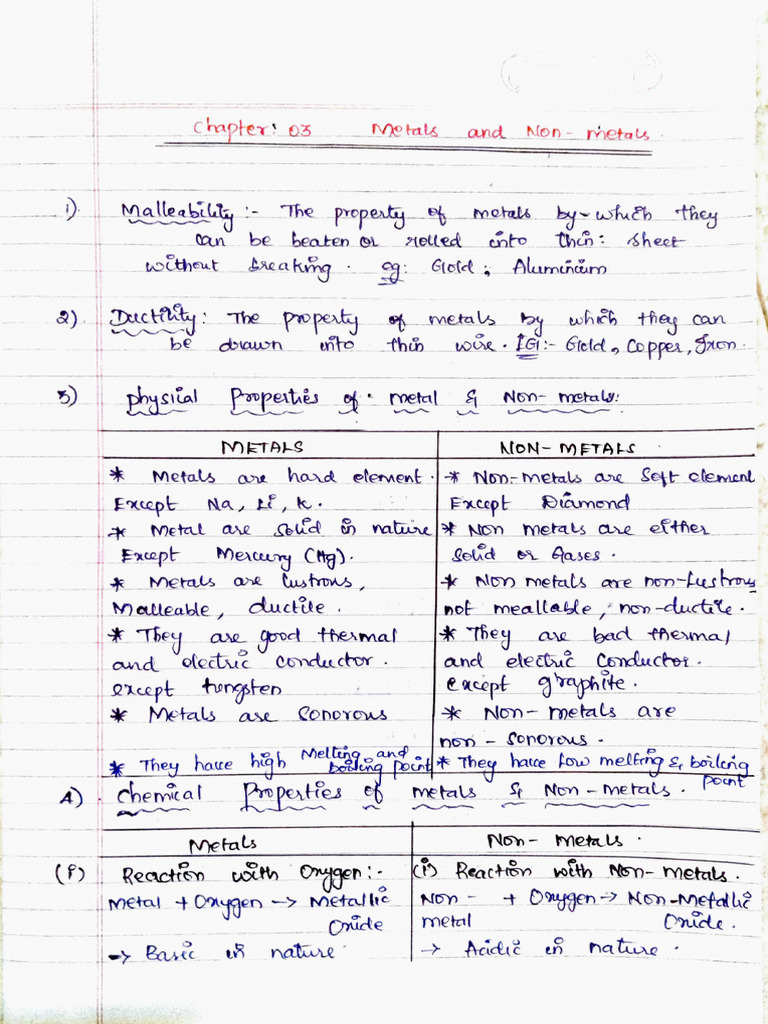 Chapter: 03 Metals and Non-metals.
1) Malleability :- The property of metals by-which they
can be beaten or rolled into thin: sheet
without breaking. eg: Gold; Aluminium
2) Ductility: The property of metals by which they can
be drawn into thin wire. EG:- Gold, Copper, Iron.
3) Physical Properties of metal & Non-metals:
METALS
* Metals are hard element.
Except Na, Li, K.
* Metal are solid in nature
Except Mercury (Hg).
* Metals are lustrous,
Malleable, ductile.
* They are good thermal
and electric conductor.
except tungsten
* Metals are Sonorous
* They have high Melting and
boiling point
NON-METALS
* Non-metals are soft element
Except Diamond
* Non metals are either
solid or Gases.
* Non metals are non-lustrous
not meallable, non-ductile.
* They are bad thermal
and electric conductor.
except graphite.
* Non-metals are
non-sonorous.
* They have low melting & boiling
point
4) Chemical Properties of metals & Non-metals.
Metals
(i) Reaction with Oxygen:-
Metal + Oxygen -> Metallic
Oxide
-> Basic in nature
Non-Metals.
(i) Reaction with Non-metals.
Non- + Oxygen -> Non-Metallic
metal Oxide.
-> Acidic in nature.